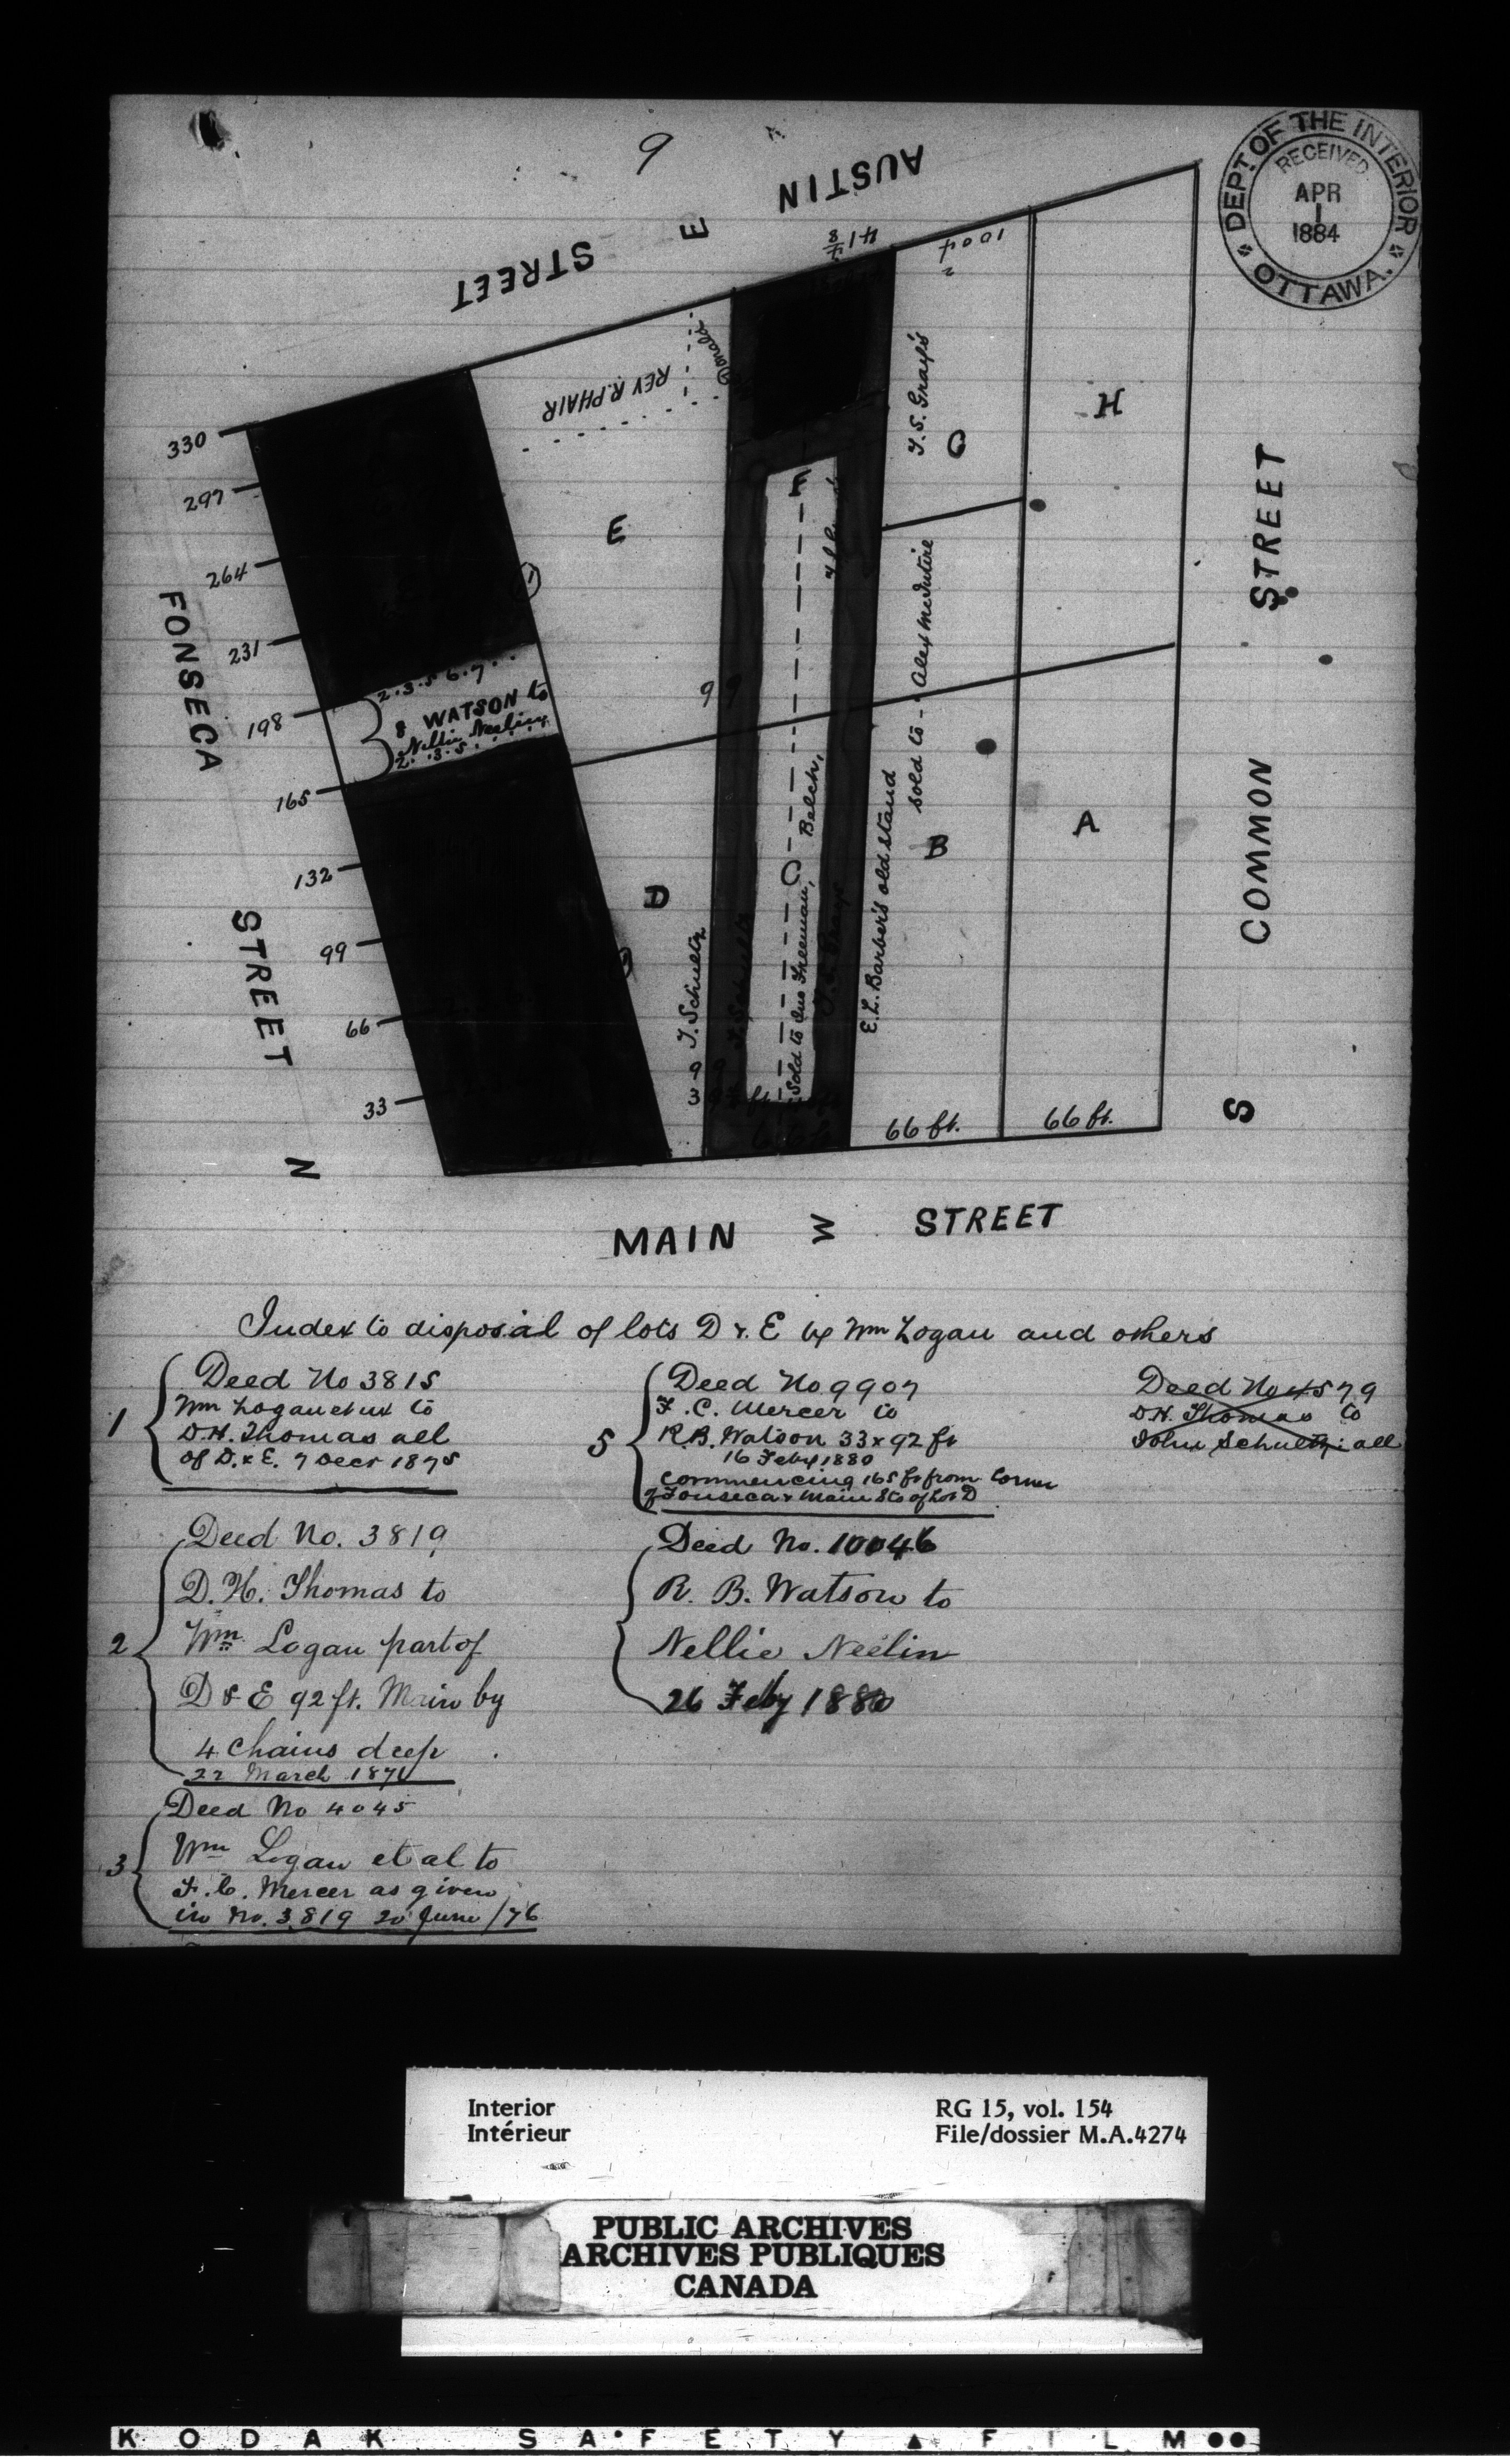 9
DEPT. OF THE INTERIOR
RECEIVED
APR
1
1884
OTTAWA.
AUSTIN
E
STREET
41 7/8
100 4
2
REV R. PHAIR
Donald
T. S. Gray's
G
H
330
297
264
231
198
165
132
99
66
33
FONSECA
STREET
N
E
1
F
99
2.3.5 6.7
8 WATSON to
Nellie Neeling
2.3.5
D
T. Schultz
99
3
C
Belch,
Sold to Jno Freeman,
E. L. Barber's old stand
sold to - Alex McIntire
B
A
66 ft.
66 ft.
STREET
COMMON
S
MAIN W STREET
Index to disposal of lots D & E by Wm Logan and others
1
Deed No 3815
Wm Logan et ux to
D. H. Thomas all
of D. & E. 7 Decr 1875
2
Deed No. 3819
D. H. Thomas to
Wm Logan part of
D & E 92 ft. Main by
4 Chains deep
22 March 187
3
Deed No 4045
Wm Logan et al to
F. C. Mercer as given
in No. 3819 20 June /76
5
Deed No 9907
F. C. Mercer to
R. B. Watson 33 x 92 ft
16 Feby 1880
commencing 165 ft from Corner
of Fonseca & Main Sts of Lot D
Deed No. 10046
R. B. Watson to
Nellie Neelin
26 Feby 1880
Deed No 4579
D. H. Thomas to
John Schultz: all
Interior
Intérieur
RG 15, vol. 154
File/dossier M.A.4274
PUBLIC ARCHIVES
ARCHIVES PUBLIQUES
CANADA
KODAK SAFETY FILM